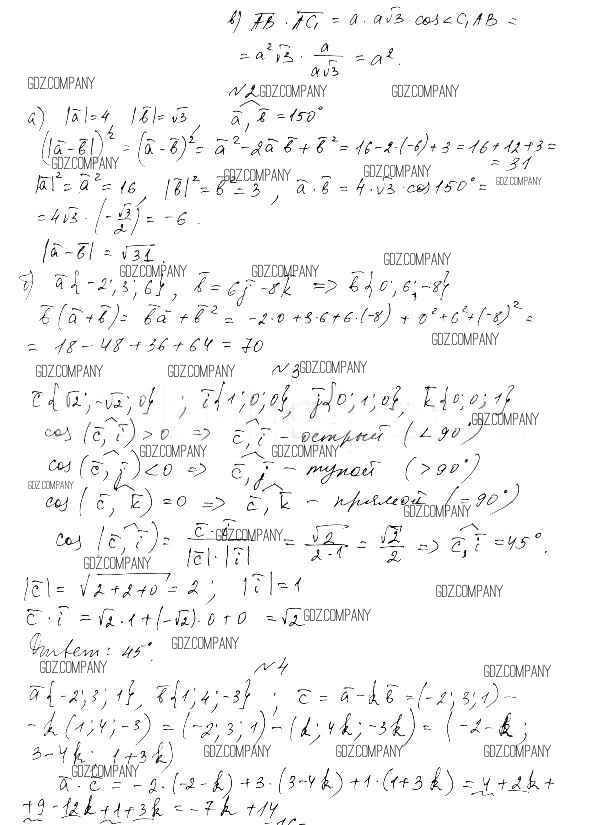 в) AB · AC₁ = a · a√3 cos∠C₁AB =
= a²√3 · a/(a√3) = a².
GDZ.COMPANY
№2 GDZ.COMPANY GDZ.COMPANY
а) |a|=4, |b|=√3, a, b = 150°
(|a-b|)² = (a-b)² = a² - 2ab + b² = 16-2·(-6)+3 = 16+12+3 =
GDZ.COMPANY = 31
GDZ.COMPANY GDZ.COMPANY GDZ.COMPANY
|a|² = a² = 16, |b|² = b² = 3, a · b = 4·√3·cos150° =
= 4√3 · (-√3/2) = -6.
|a-b| = √31.
GDZ.COMPANY GDZ.COMPANY GDZ.COMPANY
б) a{-2; 3; 6}, b = 6j - 8k => b{0; 6; -8}
b(a+b) = ba + b² = -2·0+3·6+6·(-8) + 0²+6²+(-8)² =
= 18 - 48 + 36 + 64 = 70 GDZ.COMPANY
GDZ.COMPANY GDZ.COMPANY №3 GDZ.COMPANY
c{√2; -√2; 0}; i{1; 0; 0}, j{0; 1; 0}, k{0; 0; 1}
GDZ.COMPANY
cos(c, i) > 0 => c, i - острый (< 90°)
GDZ.COMPANY GDZ.COMPANY
cos(c, j) < 0 => c, j - тупой (> 90°)
GDZ.COMPANY
cos(c, k) = 0 => c, k - прямой (= 90°)
GDZ.COMPANY
cos(c, i) = c · i/(|c|·|i|) = √2/(2·1) = √2/2 => c, i = 45°.
GDZ.COMPANY
GDZ.COMPANY
|c| = √(2+2+0) = 2; |i| = 1 GDZ.COMPANY
c · i = √2·1 + (-√2)·0 + 0 = √2 GDZ.COMPANY
Ответ: 45°. GDZ.COMPANY
GDZ.COMPANY №4 GDZ.COMPANY
a{-2; 3; 1}, b{1; 4; -3}; c = a - kb = (-2; 3; 1) -
- k(1; 4; -3) = (-2; 3; 1) - (k; 4k; -3k) = (-2-k;
3-4k; 1+3k) GDZ.COMPANY GDZ.COMPANY GDZ.COMPANY
GDZ.COMPANY
a · c = -2·(-2-k) + 3·(3-4k) + 1·(1+3k) = 4+2k+
+9-12k+1+3k = -7k+14